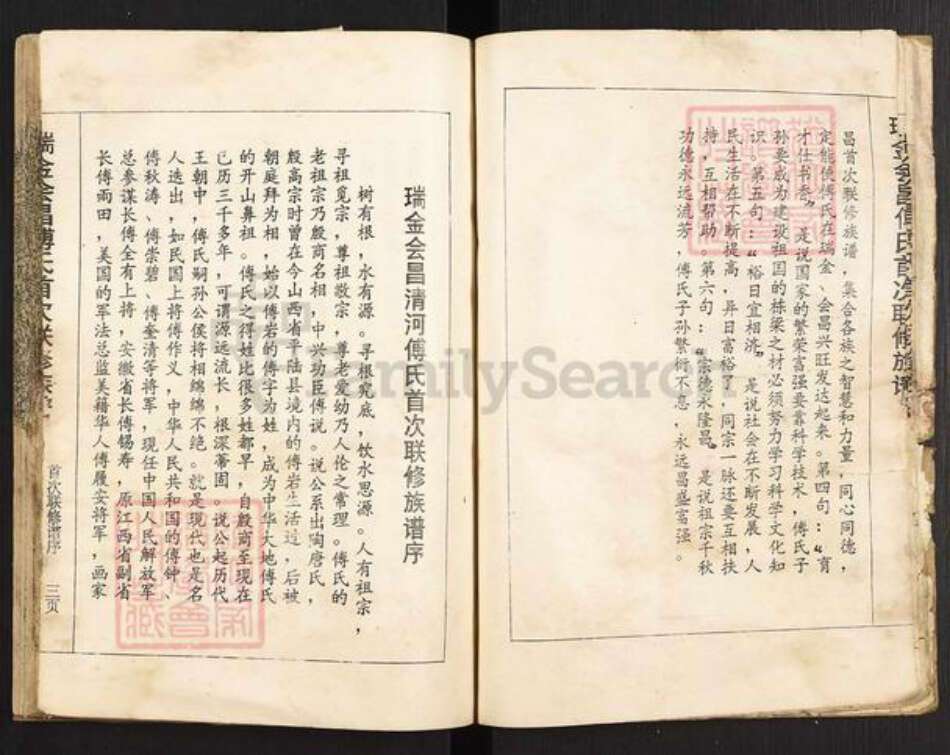 昌首次联修族谱，集合各族之智慧和力量，同心同德，
定能使傅氏在瑞金、会昌兴旺发达起来。第四句：“育
才仕书香”，是说国家的繁荣富强要靠科学技术，傅氏子
孙要成为建设祖国的栋梁之材必须努力学习科学文化知
识。第五句：“裕日宜相济”，是说社会在不断发展，人
民生活在不断提高，异日富裕了，同宗一脉还要互相扶
持，互相帮助。第六句：“宗德永隆昌”，是说祖宗千秋
功德永远流芳，傅氏子孙繁衍不息，永远昌盛富强。
瑞金会昌清河傅氏首次联修族谱序
树有根，水有源。寻根究底，饮水思源。人有祖宗，
寻祖觅宗，尊祖敬宗，尊老爱幼乃人伦之常理。傅氏的
老祖宗乃殷商名相，中兴功臣傅说。说公系出陶唐氏，
殷高宗时曾在今山西省平陆县境内的傅岩生活过，后被
朝庭拜为相，始以傅岩的傅字为姓，成为中华大地傅氏
的开山鼻祖。傅氏之得姓比很多姓都早，自殷商至现在
已历三千多年，可谓源远流长，根深蒂固。说公起历代
王朝中，傅氏嗣孙公侯将相绵绵不绝。就是现代也是名
人迭出，如民国上将傅作义，中华人民共和国的傅钟、
傅秋涛、傅崇碧、傅奎清等将军，现任中国人民解放军
总参谋长傅全有上将，安徽省长傅锡寿，原江西省副省
长傅雨田，美国的军法总监美籍华人傅履安将军，画家
瑞金会昌傅氏首次联修族谱
首次联修谱序
三页
FamilySearch